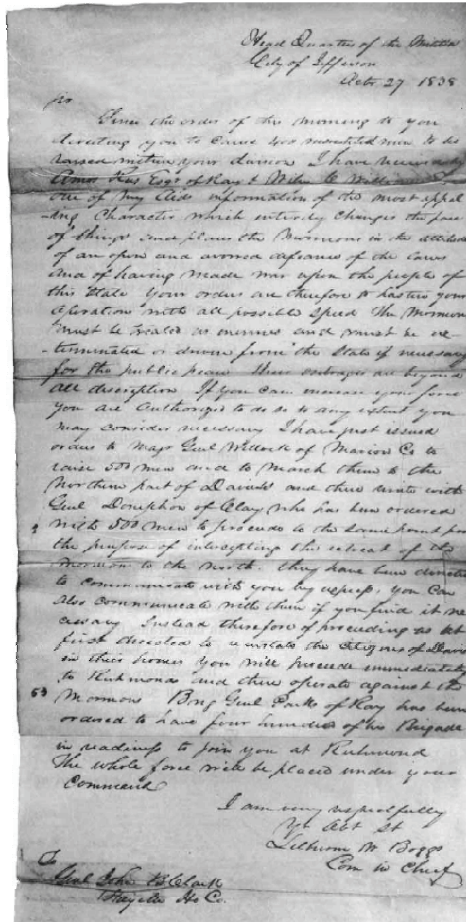 Head Quarters of the Militia
City of Jefferson
Octr 27 1838
Sir
Since the order of the morning to you
directing you to cause 400 mounted men to be
raised within your division I have received by
Amos Rees Esqr of Ray & Wiley C Williams
one of my aids information of the most appal
-ling Character which entirely changes the face
of things and places the Mormons in the attitude
of an open and avowed defiance of the laws
and of having made war upon the people of
this State Your orders are therefore to hasten your
operation with all possible speed The Mormons
must be treated as enemies and must be ex-
-terminated or driven from the State if necessary
for the public peace Their outrages are beyond
all description If you can increase your force
you are authorized to do so to any extent you
may consider necessary I have just issued
orders to Maj Genl Willock of Marion Co to
raise 500 men and to march them to the
northern part of Daviess and there unite with
Genl Doniphan of Clay who has been ordered
with 500 men to proceed to the same point for
the purpose of intercepting the retreat of the
Mormons to the North. They have been directed
to communicate with you by express, you can
also communicate with them if you find it ne
cessary Instead therefore of proceeding as at
first directed to reinstate the Citizens of Daviess
in their homes you will proceed immediately
to Richmond and there operate against the
69
Mormons Brig Genl Parks of Ray has been
ordered to have four hundred of his Brigade
in readiness to join you at Richmond
The whole force will be placed under your
Command
I am very respectfully
Yr obt St
Lilburn W Boggs
Com in Chief
To
Genl John B Clark
Fayette Ho Co.